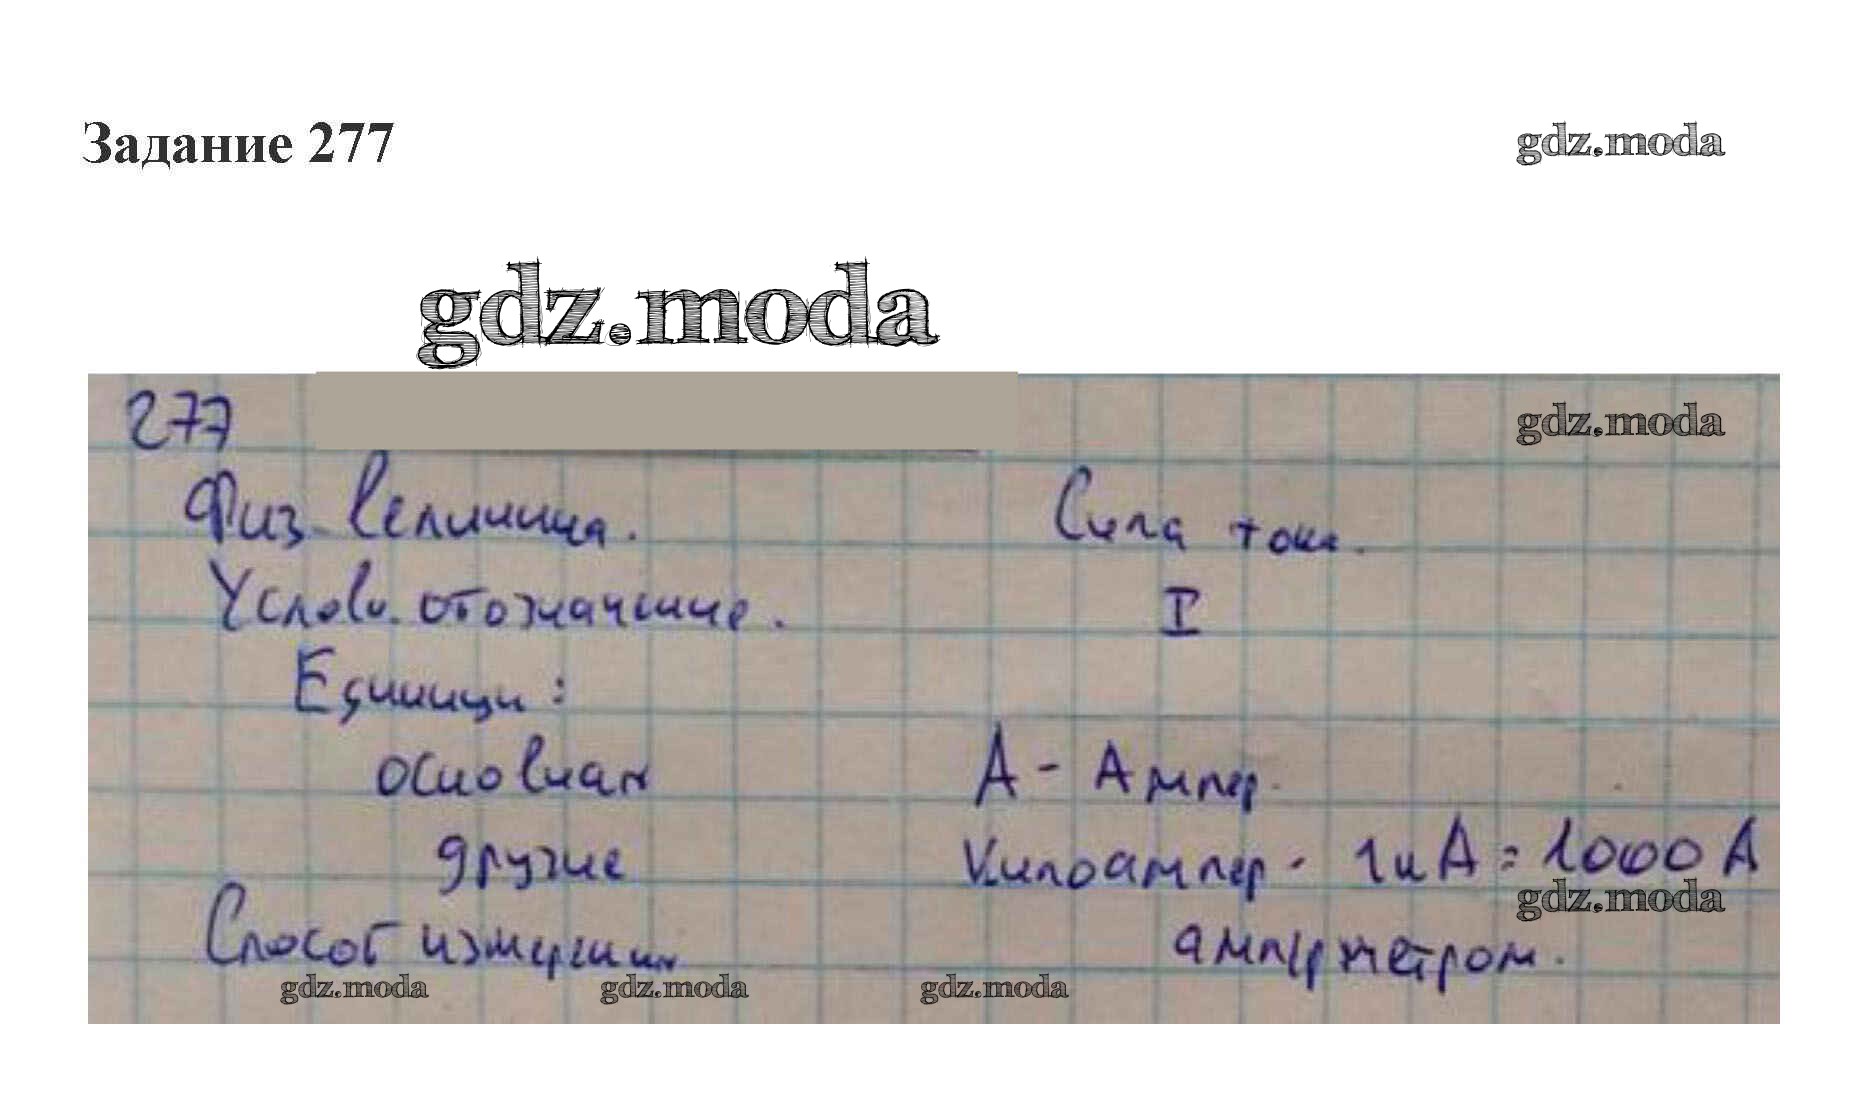 Задание 277
gdz.moda
gdz.moda
277
gdz.moda
Физ. величина. Сила тока.
Условн. обозначение. I
Единицы:
основная А - Ампер.
другие Килоампер - 1кА = 1000 А
gdz.moda
Способ измерения амперметром.
gdz.moda gdz.moda gdz.moda